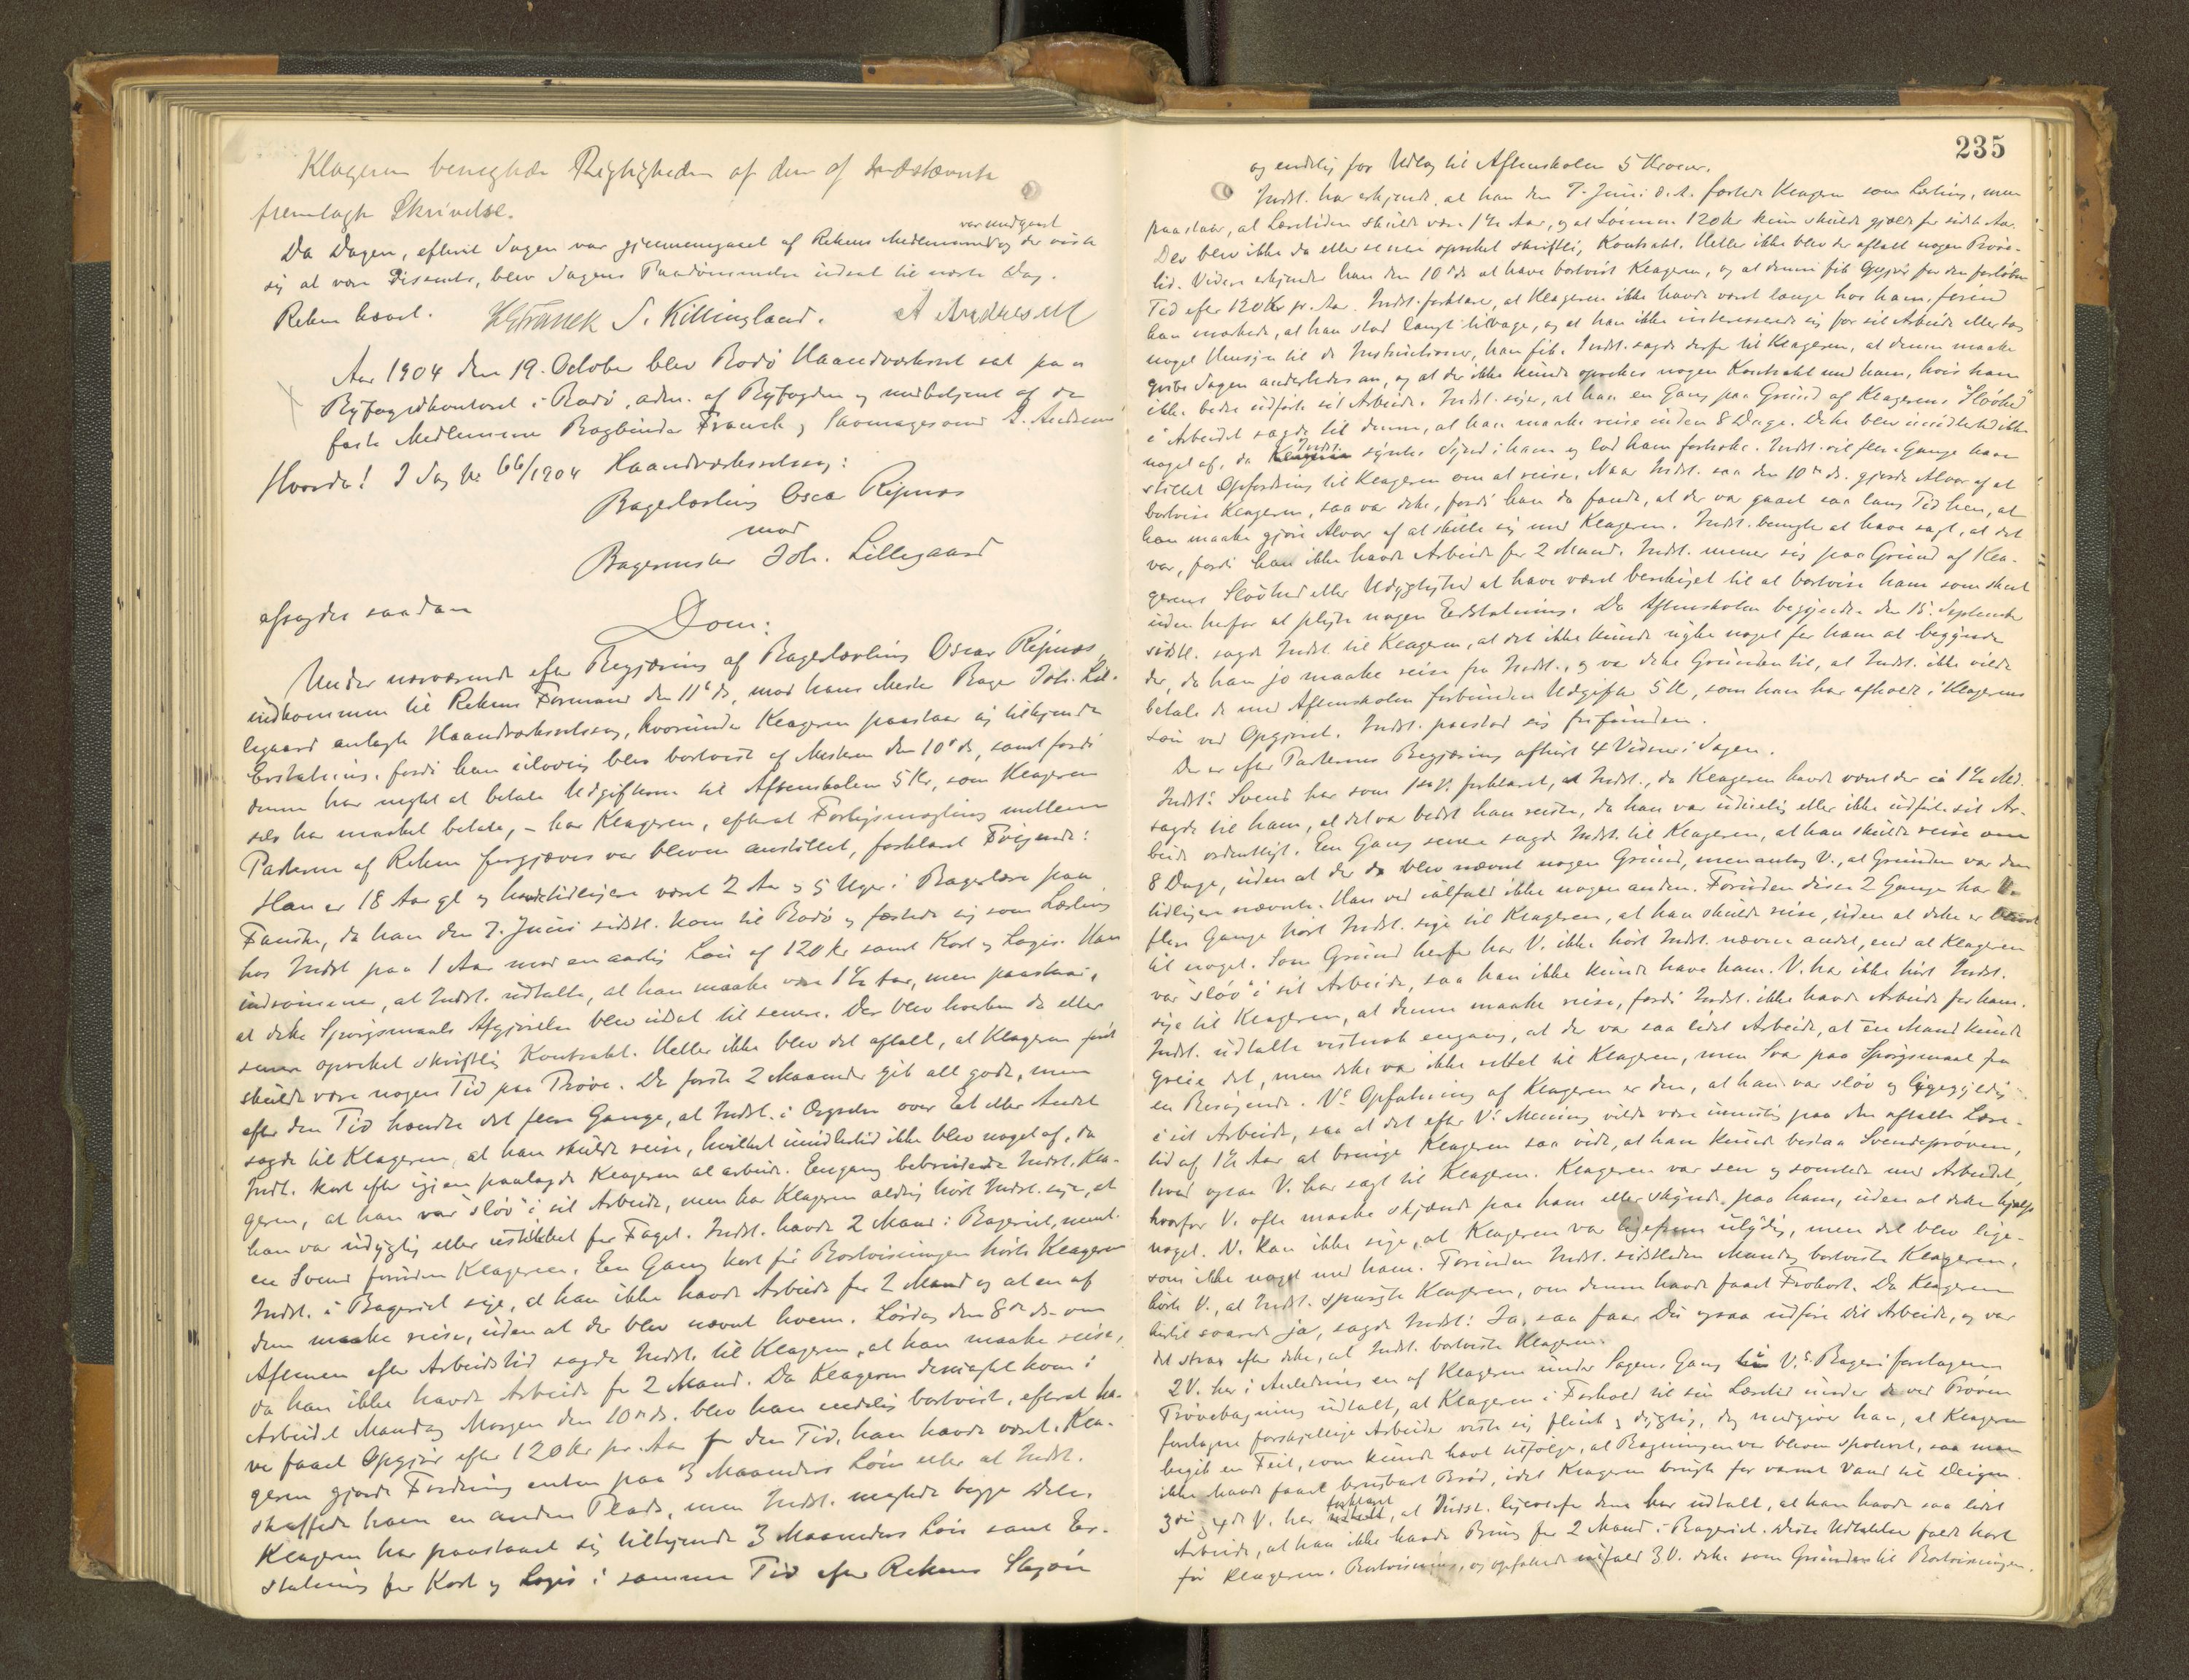 Klageren benegtede Rigtigheden af den af Indstævnte
fremlagte Skrivelse.
var medgaaet
Da Dagen, efterat Sagen var gjennemgaaet af Rettens Medlemmer og der viste
sig at være Dissents, blev Sagens Paadømmelse udsat til næste Dag.
Retten hævet. Franck S. Killingland. A Andresen
Aar 1904 den 19. October blev Bodø Haandværksret sat paa
Byfogedkontoret i Bodø, adm. af Byfogden og medbetjent af de
faste Medlemmer Bogbinder Franck og Skomagersvend A. Andresen
Hvorda! I Sag No 66/1904 Haandværksretssag:
Bagerlærling Oscar Ripnæs
mod
Bagermester Joh. Lillegaard
afsagdes saadan
Dom:
Under nærværende efter Begjæring af Bagerlærling Oscar Ripnæs,
indkommen til Rettens Formand den 11te ds, mod hans Mester Bager Joh. Lil-
legaard anlagte Haandværksretssag, hvorunder Klageren paastaar sig tilkjendt
Erstatning, fordi han ulovlig blev bortvist af Mesteren den 10de ds, samt fordi
denne har negtet at betale Udgifterne til Aftenskolen 5 Kr, som Klageren
selv har maattet betale, – har Klageren, efterat Forligsmægling mellem
Parterne af Retten forgjæves var bleven anstillet, forklaret Følgende:
Han er 18 Aar gl og havde tidligere været 2 Aar og 5 Uger i Bagerlære paa
Fauske, da han den 7. Juni sidstl. kom til Bodø og fæstede sig som Lærling
hos Indst paa 1 Aar mod en aarlig Løn af 120 kr samt Kost og Logis. Han
indrømmer, at Indst. udtalte, at han maatte være 1½ Aar, men paastaar,
at dette Spørgsmaals Afgjørelse blev udsat til senere. Der blev hverken da eller
senere oprettet skriftlig Kontrakt. Heller ikke blev det aftalt, at Klageren først
skulde være nogen Tid paa Prøve. De første 2 Maaneder gik alt godt, men
efter den Tid hændte det flere Gange, at Indst. i Ærgrelse over Et eller Andet
sagde til Klageren, at han skulde reise, hvilket imidlertid ikke blev noget af, da
Indst. kort efter igjen paalagde Klageren at arbeide. Engang bebreidede Indst. Kla-
geren, at han var "sløv" i sit Arbeide, men har Klageren aldrig hørt Indst. sige, at
han var udygtig eller uskikket for Faget. Indst. havde 2 Mand i Bageriet, neml.
en Svend foruden Klageren. En Gang kort før Bortvisningen hørte Klageren
Indst. i Bageriet sige, at han ikke havde Arbeide for 2 Mand og at en af
dem maatte reise, uden at der blev nævnt hvem. Lørdag den 8de ds om
Aftenen efter Arbeidstid sagde Indst. til Klageren, at han maatte reise,
da han ikke havde Arbeide for 2 Mand. Da Klageren desuagtet kom i
Arbeidet Mandag Morgen den 10de ds. blev han endelig bortvist, efterat ha-
ve faaet Opgjør efter 120 kr pr. Aar for den Tid, han havde været. Kla-
geren gjorde Fordring enten paa 3 Maaneders Løn eller at Indst.
skaffede ham en anden Plads, men Indst. negtede begge Dele.
Klageren har paastaaet sig tilkjendt 3 Maaneders Løn samt Er-
statning for Kost og Logis i samme Tid efter Rettens Skjøn
235
og endelig for Udlæg til Aftenskolen 5 Kroner.
Indst. har erkjendt, at han den 7. Juni d.A. fæstede Klageren som Lærling, men
paastaar, at Læretiden skulde være 1½ Aar, og at Lønnen 120 kr kun skulde gjælde for sidste Aar.
Der blev ikke da eller senere oprettet skriftlig Kontrakt. Heller ikke blev der aftalt nogen Prøve-
tid. Videre erkjender han den 10de ds at have bortvist Klageren, og at denne fik Opgjør for den forløbne
Tid efter 120 Kr pr. Aar. Indst. forklarer, at Klageren ikke havde været længe hos ham, førend
han mærkede, at han stod langt tilbage, og at han ikke interesserede sig for sit Arbeide eller tog
noget Hensyn til de Instruktioner, han fik. Indst. sagde derfor til Klageren, at denne maatte
gribe Sagen anderledes an, og at der ikke kunde oprettes nogen Kontrakt med ham, hvis han
ikke bedre udførte sit Arbeide. Indst. siger, at han en Gang paa Grund af Klagerens "Sløvhed"
i Arbeidet sagde til denne, at han maatte reise inden 8 Dage. Dette blev imidlertid ikke
Indst.
noget af, da Klageren syntes Synd i ham og lod ham fortsætte. Indst. vil flere Gange have
stillet Opfordring til Klageren om at reise. Naar Indst. saa den 10de ds. gjorde Alvor af at
bortvise Klageren, saa var dette, fordi han da fandt, at der var gaaet saa lang Tid hen, at
han maatte gjøre Alvor af at skille sig med Klageren. Indst. benegter at have sagt, at det
var, fordi han ikke havde Arbeide for 2 Mand. Indst. mener sig paa Grund af Kla-
gerens Sløvhed eller Udygtighed at have været berettiget til at bortvise ham som skeet
uden herfor at pligte nogen Erstatning. Da Aftenskolen begyndte den 15. September
sidstl. sagde Indst til Klageren, at det ikke kunde nytte noget for ham at begynde
der, da han jo maatte reise fra Indst., og var dette Grunden til, at Indst. ikke vilde
betale de med Aftenskolen forbundne Udgifter 5 Kr, som han har afholdt i Klagerens
Løn ved Opgjøret. Indst. paastod sig frifunden.
Der er efter Parternes Begjæring afhørt 4 Vidner i Sagen.
Indst.s Svend har som 1ste V. forklaret, at Indst., da Klageren havde været der ca 1½ Md.
sagde til ham, at det var bedst han reiste, da han var uduelig eller ikke udførte sit Ar-
beide ordentligt. En Gang senere sagde Indst. til Klageren, at han skulde reise om
8 Dage, uden at der da blev nævnt nogen Grund, men antog V., at Grunden var den
tidligere nævnte. Han ved ialfald ikke nogen anden. Foruden disse 2 Gange har V.
flere Gange hørt Indst. sige til Klageren, at han skulde reise, uden at dette er blevet
til noget. Som Grund herfor har V. ikke hørt Indst. nævne andet, end at Klageren
var "sløv" i sit Arbeide, saa han ikke kunde have ham. V. har ikke hørt Indst.
sige til Klageren, at denne maatte reise, fordi Indst. ikke havde Arbeide for ham.
Indst. udtalte vistnok engang, at der var saa lidet Arbeide, at én Mand kunde
greie det, men dette var ikke rettet til Klageren, men Svar paa Spørgsmaal fra
en Besøgende. V.s Opfatning af Klageren er den, at han var sløv og ligegyldig
i sit Arbeide, saa at det efter V.s Mening vilde være umulig paa den aftalte Lære-
tid af 1½ Aar at bringe Klageren saa vidt, at han kunde bestaa Svendeprøven,
hvad ogsaa V. har sagt til Klageren. Klageren var sen og somlede med Arbeidet,
hvorfor V. ofte maatte skjænde paa ham eller skynde paa ham, uden at dette hjalp
noget. V. kan ikke sige, at Klageren var ligefrem ulydig, men det blev lige-
som ikke noget med ham. Forinden Indst. sidstleden Mandag bortviste Klageren,
hørte V., at Indst. spurgte Klageren, om denne havde faaet Frokost. Da Klageren
hertil svarede ja, sagde Indst: Ja, saa faar Du ogsaa udføre dit Arbeide, og var
det strax efter dette, at Indst. bortviste Klageren.
2 V. har i Anledning en af Klageren under Sagens Gang i V.s Bageri foretagen
Prøvebagning udtalt, at Klageren i Forhold til sin Læretid under de ved Prøven
foretagne forskjellige Arbeider viste sig flink og dygtig, dog medgiver han, at Klageren
begik en Feil, som kunde havt tilfølge, at Bagningen var bleven spoleret, saa man
ikke havde faaet brugbart Brød, idet Klageren brugte for varmt Vand til Deigen.
forklaret
3die og 4de V. har udtalt, at Indst. ligeoverfor dem har udtalt, at han havde saa lidet
Arbeide, at han ikke havde Brug for 2 Mand i Bageriet. Disse Udtalelser faldt kort
før Klagerens Bortvisning, og opfattede ialfald 3 V. dette som Grunden til Bortvisningen.